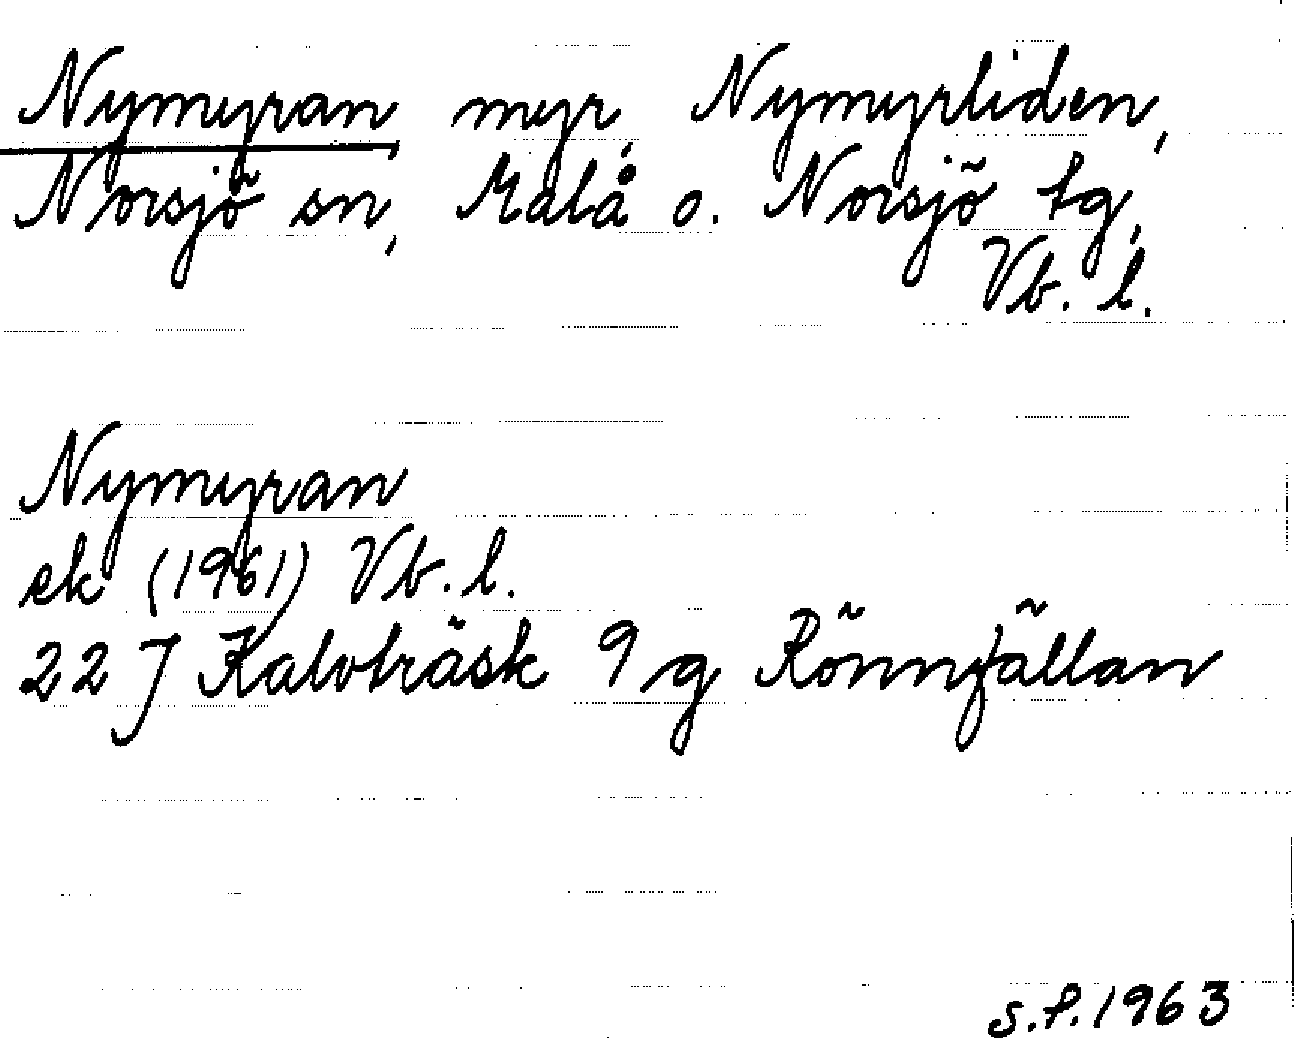 Nymyran, myr, Nymyrliden,
Norsjö sn, Malå o. Norsjö tg,
Vb. l.
Nymyran
ek (1961) Vb. l.
22 J Kalvträsk 9 g Rönnfällan
s.f. 1963